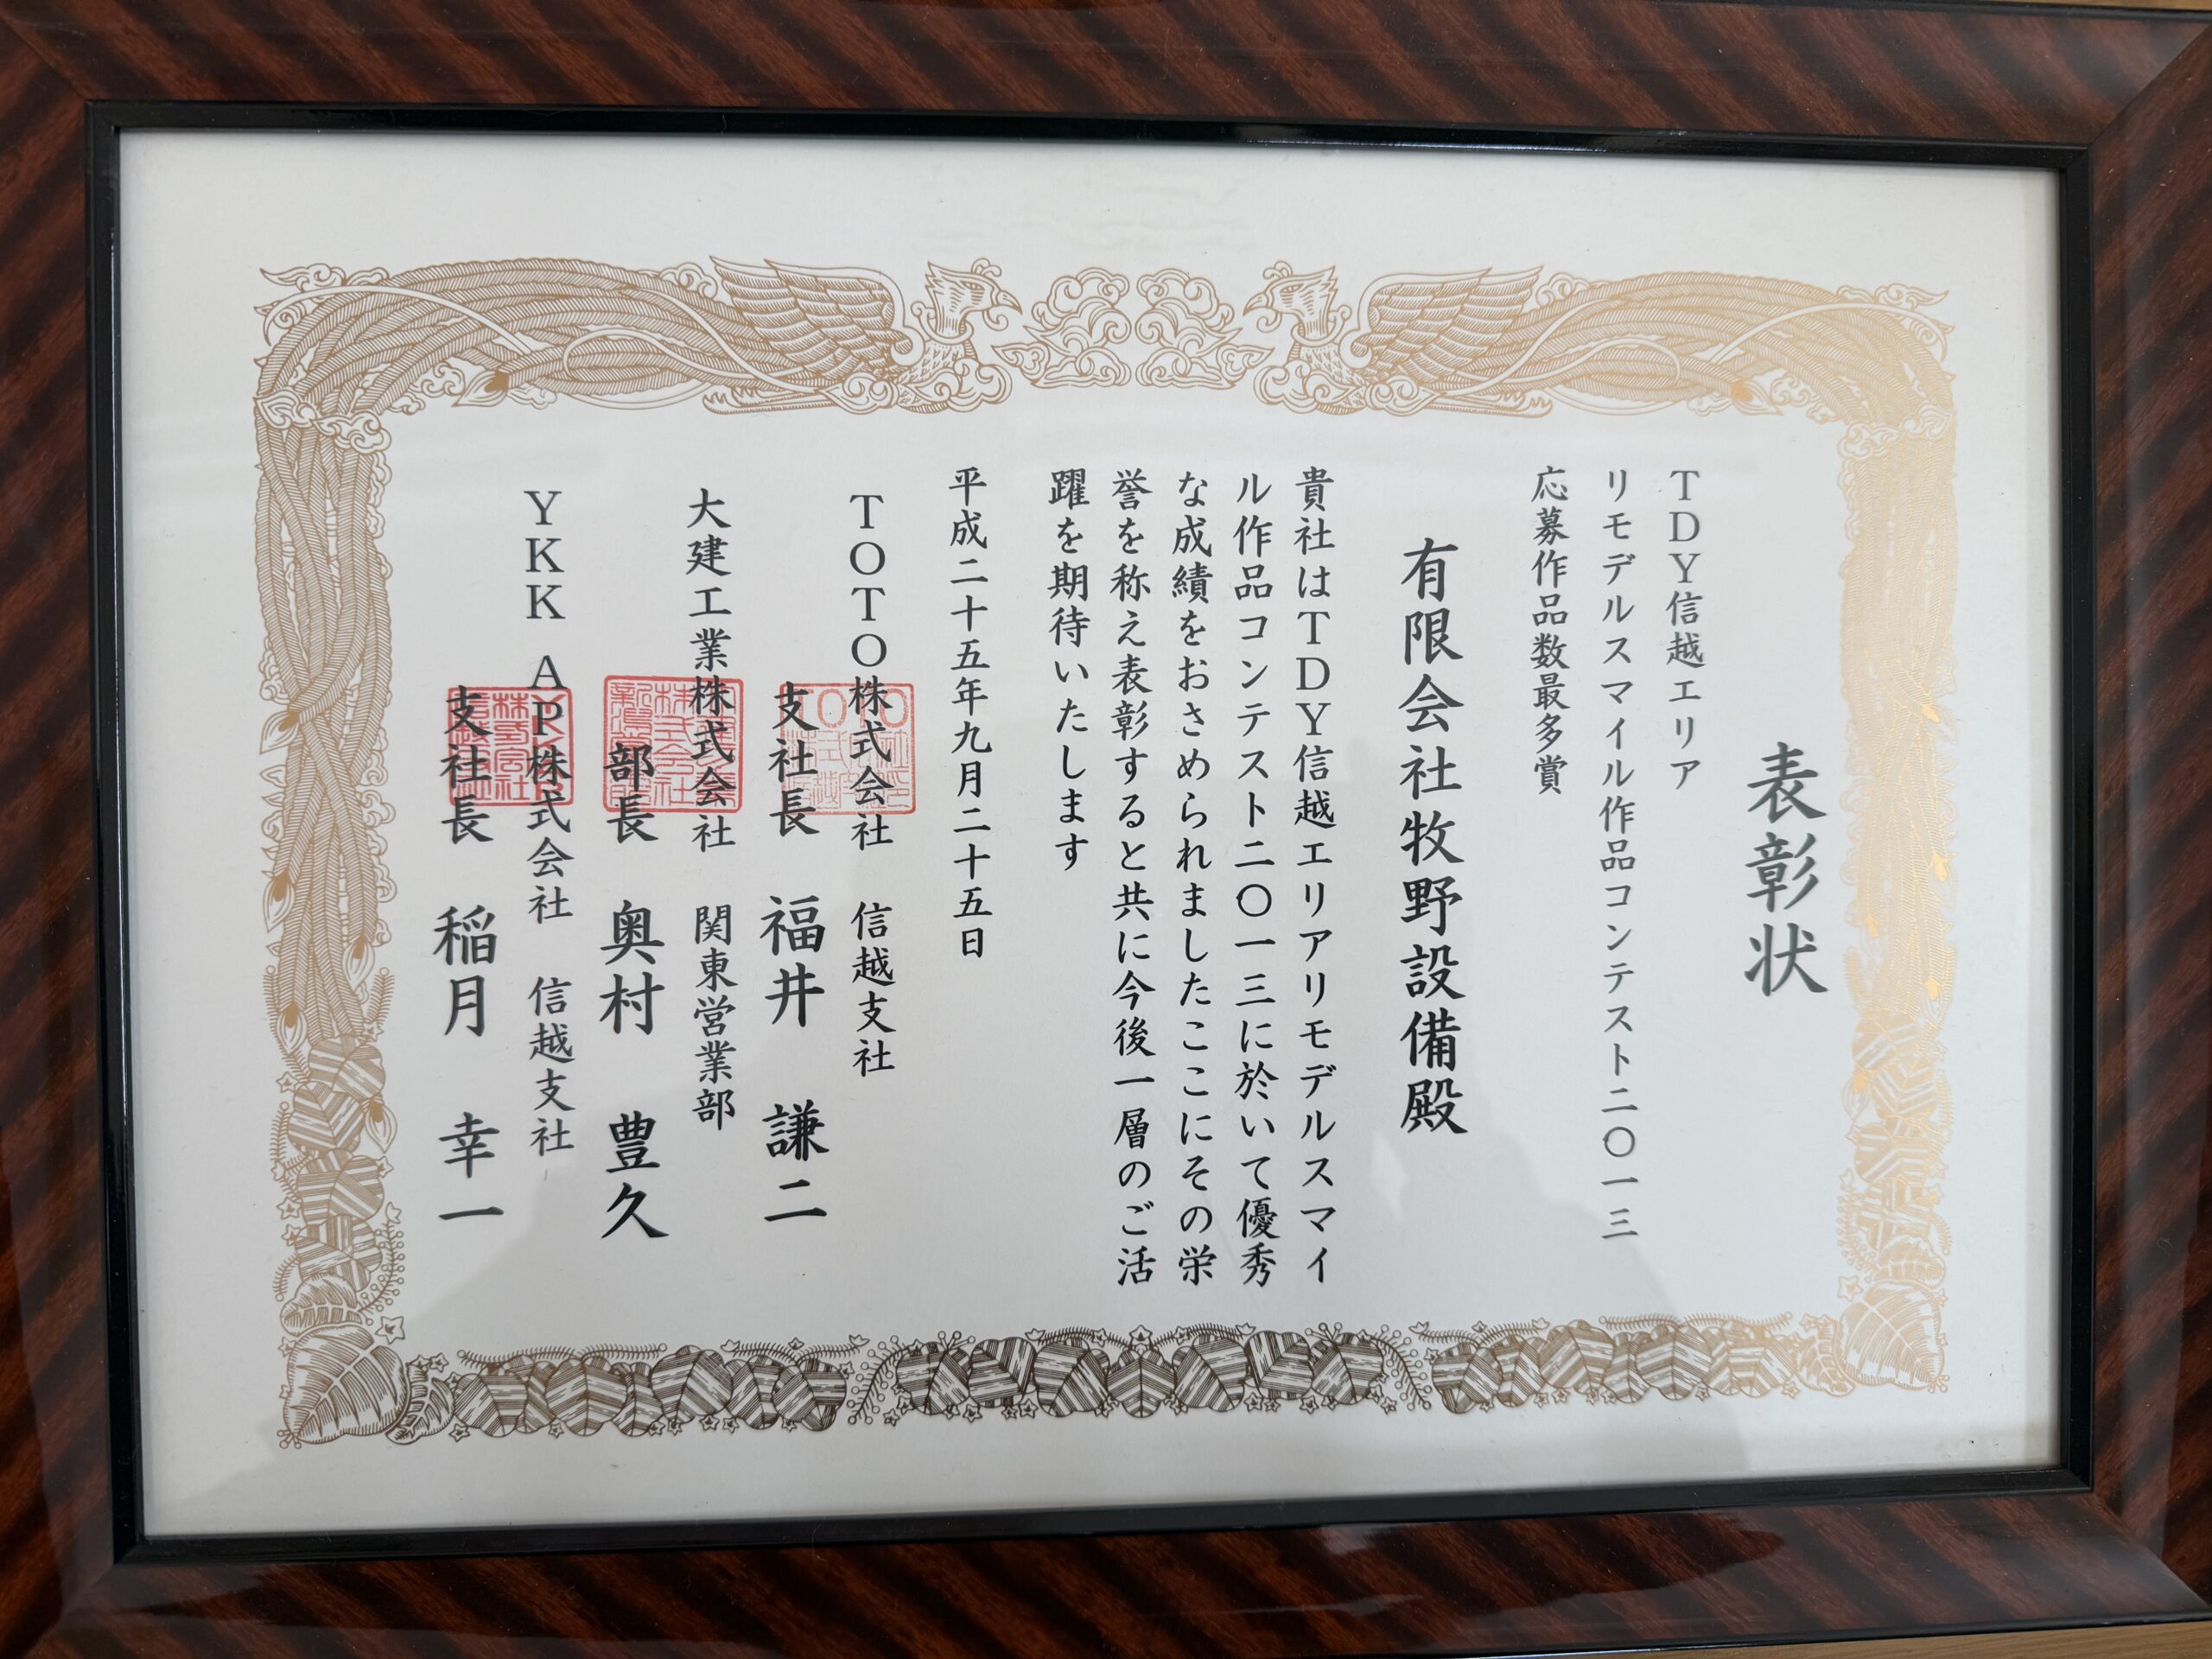 表彰状
TDY信越エリア
リモデルスマイル作品コンテスト二〇一三
応募作品数最多賞
有限会社牧野設備殿
貴社はTDY信越エリアリモデルスマイ
ル作品コンテスト二〇一三に於いて優秀
な成績をおさめられましたここにその栄
誉を称え表彰すると共に今後一層のご活
躍を期待いたします
平成二十五年九月二十五日
TOTO株式会社 信越支社
支社長 福井 謙二
大建工業株式会社 関東営業部
部長 奥村 豊久
YKK AP株式会社 信越支社
支社長 稲月 幸一